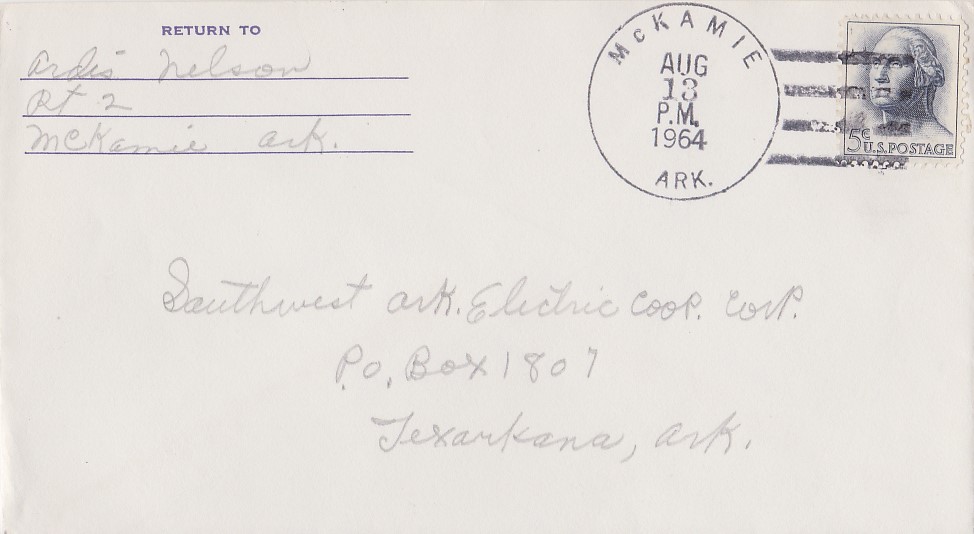 RETURN TO
Ardis Nelson
Rt 2
McKamie Ark.
McKAMIE
AUG
13
P.M.
1964
ARK.
5c
U.S. POSTAGE
Southwest Ark. Electric Coop. Corp.
P.O. Box 1807
Texarkana, Ark.